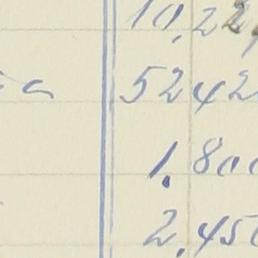 10,22
a 5242
1.800
2.450